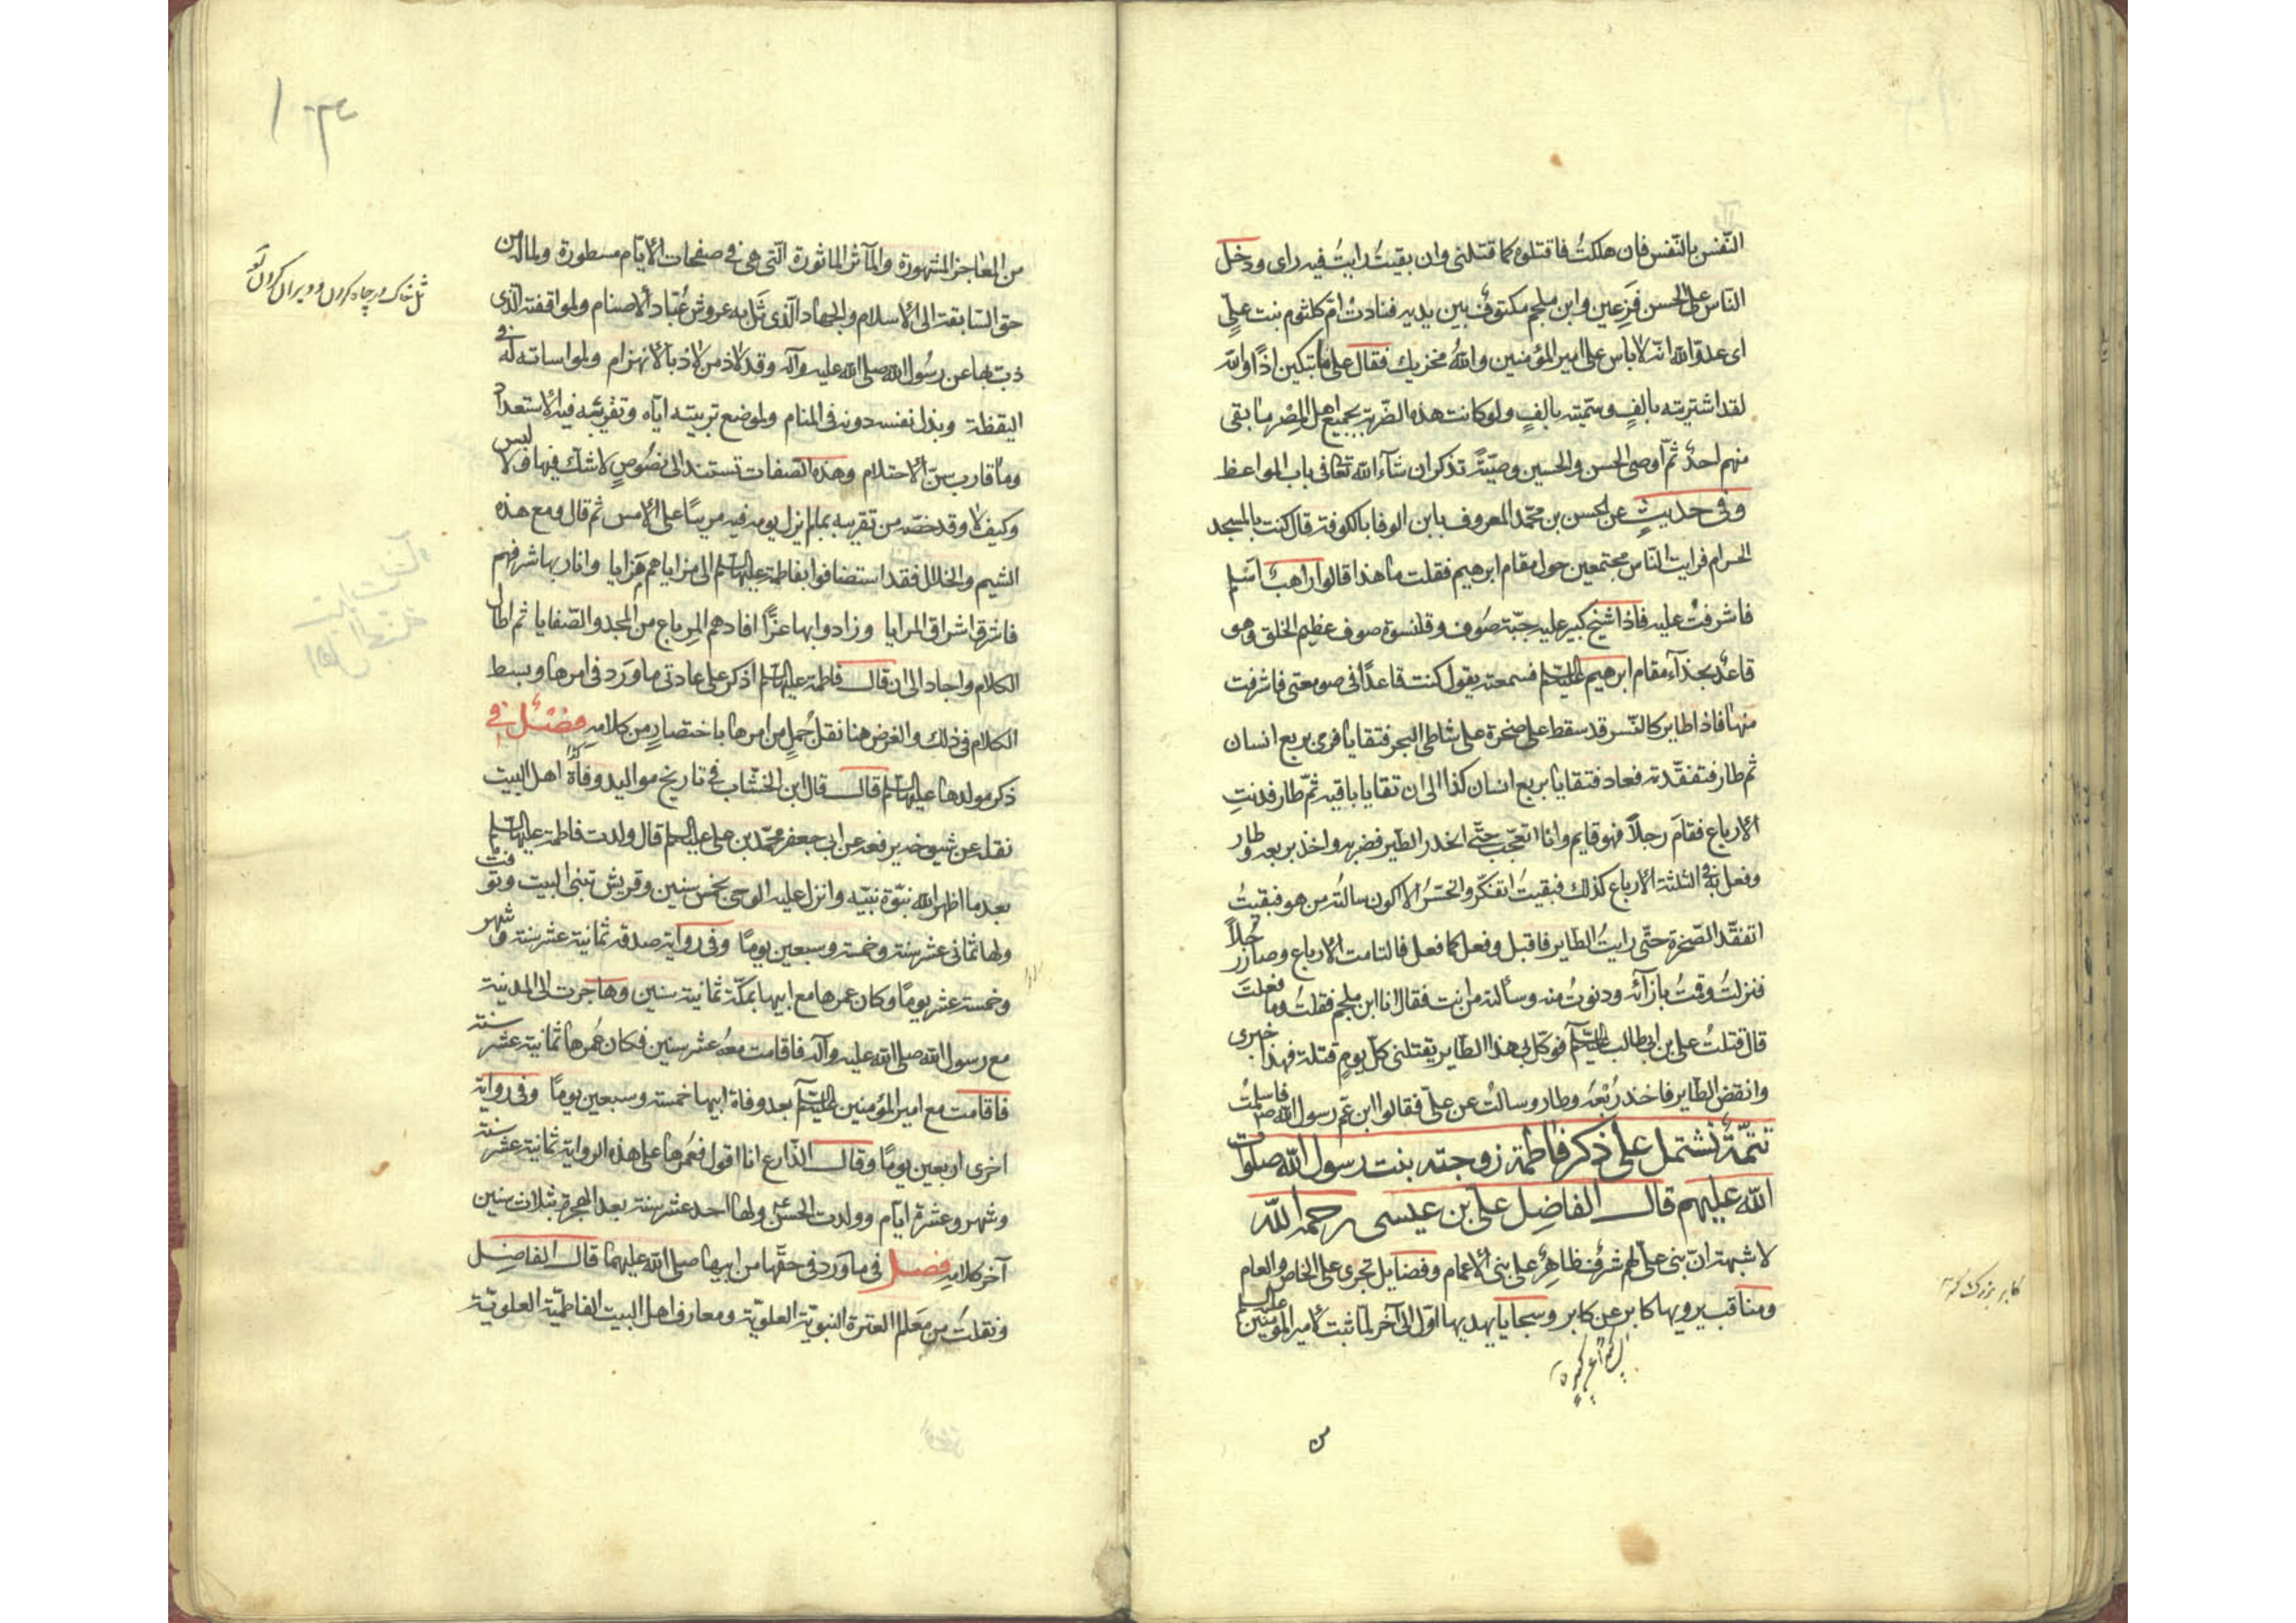 النّفس بالنّفس فان هلكتُ فاقتلوه كما قتلنى وان بقيتُ رايتُ فيه راى ودخل
النّاس على الحسن فَزِعين وابن ملجم مكتوفٌ بين يديه فنادتْ امّ كلثوم بنت علىٍّ
اى عدوّ الله انّه لا باس على امير المؤمنين واللهُ مخزيك فقال على ما تبكين اذًا والله
لقد اشتريته بالفٍ وسَمَمته بالفٍ ولو كانت هذه الضّربة بجميع اهل المِصْر ما بقى
منهم احدٌ ثمّ اوصى الحسن والحسين وصيّةً تذكر ان شآء الله تعالى فى باب المواعظ
وفى حديثٍ عن الحسن بن محمّد المعروف بابن الوفا بالكوفة قال كنت بالمسجد
الحرام فرايت النّاس مجتمعين حول مقام ابرهيم فقلت ما هذا قالوا راهبٌ اسلم
فاشرفتُ عليه فاذا شيخ كبير عليه جبّة صُوف وقلنسوة صوف عظيم الخلق وهو
قاعدٌ بحذآء مقام ابرهيم عليه السلم فسمعته يقول كنت قاعدًا فى صومعتى فاشرفت
منها فاذا طاير كالنّسر قد سقط على صخرة على شاطى البحر فتقايا فرمى بربع انسان
ثم طار فتفقّدته فعاد فتقايا بربع انسان كذا الى ان تقايا باقيه ثمّ طار فدنتِ
الارباع فقامَ رجلاً فهو قايم وانا اتعجّب حتّى انحدر الطّير فضربه واخذ بربعه وطار
وفعل به فى الثلثة الارباع كذلك فبقيتُ اتفكّر واتحسّرُ الا اكون سالتُه من هو فبقيتُ
اتفقّد الصّخرة حتّى رايتُ الطّاير فاقبل وفعل كما فعل فالتامت الارباع وصار رجُلاً
فنزلتُ وقمتُ بازآئه ودنوتُ منه وسألته من انت فقال انا ابن ملجم فقلتُ وما فعلتَ
قال قتلتُ على بن ابى طالب عليه السلم فوكّل بى هذا الطّاير يقتلنى كلّ يومٍ قتلة فهذا خبرى
وانقضّ الطّاير فاخذ رُبْعَهُ وطار وسالتُ عن علىّ فقالوا ابن عم رسول الله ص فاسلمتُ
تتمّةٌ تشتمل على ذكر فاطمة زوجته بنت رسول الله صلوات
الله عليهم قال الفاضِل على بن عيسى رحمه الله
لا شبهة انّ بنى علىّ لهم شرفٌ ظاهِرٌ على بنى الاعمام وفضايل تجرى على الخاصّ والعام
ومناقب يرويها كابر عن كابر وسجايا يهديها اوّل الى آخر لما ثبت لامير المؤمنين عليه السلم
من
من المعاجز المشهورة والمآثر الماثورة الّتى هى فى صفحات الايّام مسطورة ولماله من
حق السّابقة الى الاسلام والجهاد الّذى ثَلّ به عروش عُبّاد الاصنام ولمواقفه الّذى
ذبّ بها عن رسُول الله صلى الله عليه وآله وقد لاذ من لاذ بالانهزام ولمواساته له فى
اليقظة وبذل نفسه دونه فى المنام ولموضع تربيته ايّاه وتفرّسه فيه الاستعداد
وما قارب سنّ الاحتلام وهذه الصّفات تستند الى نصُوصٍ لا شكّ فيها ولا لبس
وكيف لا وقد خصّه من تقريبه بما لم يزل يومه فيه مربيًا على الامس ثم قال ومع هذه
الشيم والخلال فقد استضافوا بفاطمة عليها السلم الى مزاياهم مَزايا وانار بها شرفهم
فاشرق اشراق المرايا وزادوا بها عزًّا افادهم المِرباع من المجد والصّفايا ثم اطال
الكلام واجاد الى ان قال فاطمة عليها السلم اذكر على عادتى ما ورد فى امرها وبسط
الكلام فى ذلك والغرض هنا نقل جُملٍ من امرها باختصارٍ من كلامه فصل فى
ذكر مولدها عليها السلم قال قال ابن الخشّاب فى تاريخ مواليد ووفاة اهل البيت
نقله عن شيوخه يرفعه عن ابى جعفر محمّد بن على عليهما السلم قال ولدت فاطمة عليها السلم
بعد ما اظهر الله نبّوة نبيّه وانزل عليه الوحى بخمس سنين وقريش تبنى البيت وتوفّيت
ولها ثمانى عشر سنة وخمسة وسبعين يومًا وفى رواية صدقة ثمانية عشر سنة وشهر
وخمسة عشر يومًا وكان عمرها مع ابيها بمكّة ثمانية سنين وهاجرت الى المدينة
مع رسول الله صلى الله عليه وآله فاقامت معهُ عشر سنين فكان عُمرها ثمانية عشر سنة
فاقامت مع امير المؤمنين عليه السلم بعد وفاة ابيها خمسة وسبعين يومًا وفى رواية
اخرى اربعين يومًا وقال الذّارع انا اقول فعُمرها على هذه الرواية ثمانية عشر سنة
وشهر وعشرة ايّام وولدت الحسن ولها احد عشر سنة بعد الهجرة بثلاث سنين
آخر كلامه فصل فى ما وَرَد فى حقّها من ابيها صلى الله عليهما قال الفاضِل
ونقلت من مَعَالم العترة النبويّة العلويّة ومعارف اهل البيت الفاطميّة العلويّة